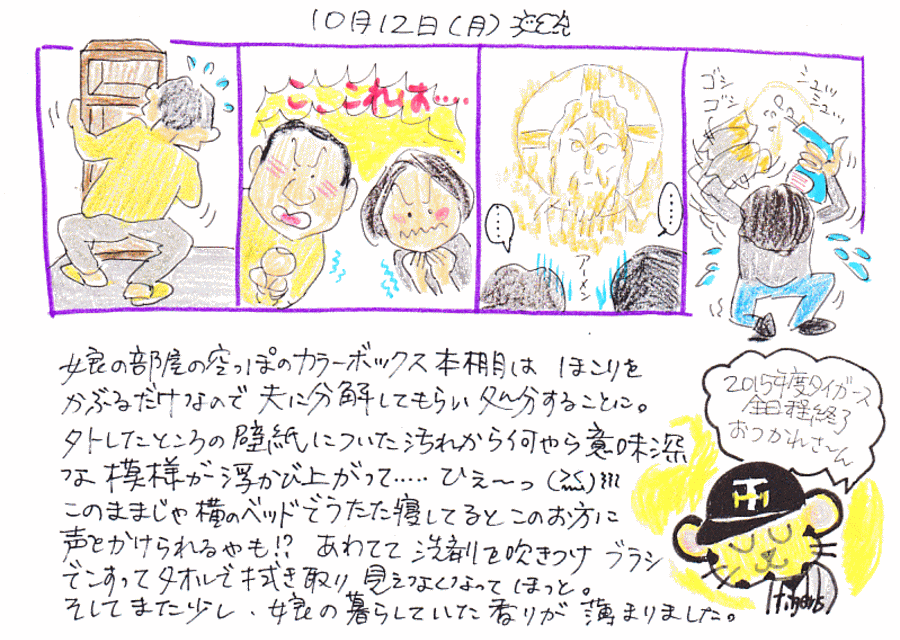 10月12日(月)
こ、これは‥‥
‥‥
‥‥
アーメン
ゴシ
ゴシ
シュッ
シュー
娘の部屋の空っぽのカラーボックス本棚は ほこりを
かぶるだけなので 夫に分解してもらい処分することに。
外したところの壁紙についた汚れから何やら意味深
な模様が浮かび上がって‥‥‥ ひえ〜っ
このままじゃ横のベッドでうたた寝してるとこのお方に
声をかけられるやも!? あわてて洗剤を吹きつけ ブラシ
でこすってタオルで拭き取り見えなくなってほっと。
そしてまた少し、娘の暮らしていた香りが薄まりました。
2015年度タイガース
全日程終了
おつかれさ〜ん
tigers